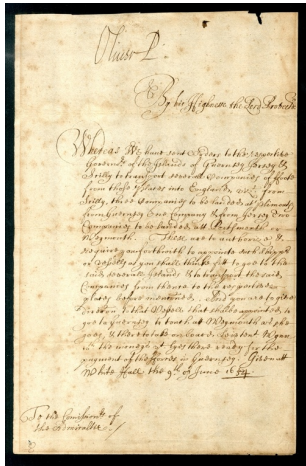 Oliver P.
By his Highnesse the Lord Protector
Whereas We have sent Orders to the respective
Governors of the Islands of Guernsey Jersey &
Scilly to transport several Companies of ffoot
from those places into England, viz. from
Scilly, three Companies to be landed at Plimouth
from Guernsey One Company & from Jersey two
Companies to be landed att Portsmouth or
Weymouth. These are to authorise &
require you forthwith to appoint such Shipps
or Vessells as you shall think fit to goe to the
said severall Islands & to transport the said
Companies from thence to the respective
places before mentioned. And you are to give
direction to that Vessell that shalbe appointed to
goe to Guernsey to touch at Weymouth as she
goes, & there to take on board
the money at lyes there ready for the
payment of the fforces in Guernsey. Given att
White Hall the 9th of June 1654.
To the Comission.rs of
the Admiralty